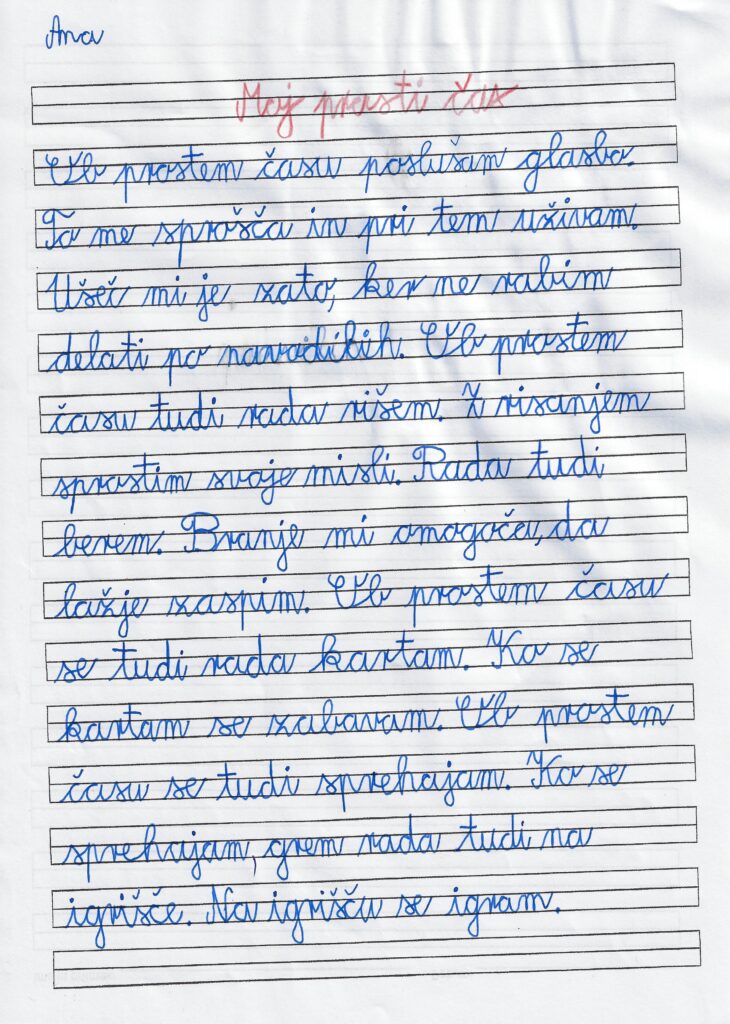 Ana
Moj prosti čas
Ob prostem času poslušam glasbo.
To me sprošča in pri tem uživam.
Všeč mi je zato, ker ne rabim
delati po navodilih. Ob prostem
času tudi rada rišem. Z risanjem
sprostim svoje misli. Rada tudi
berem. Branje mi omogoča, da
lažje zaspim. Ob prostem času
se tudi rada kartam. Ko se
kartam se zabavam. Ob prostem
času se tudi sprehajam. Ko se
sprehajam, grem rada tudi na
igrišče. Na igrišču se igram.